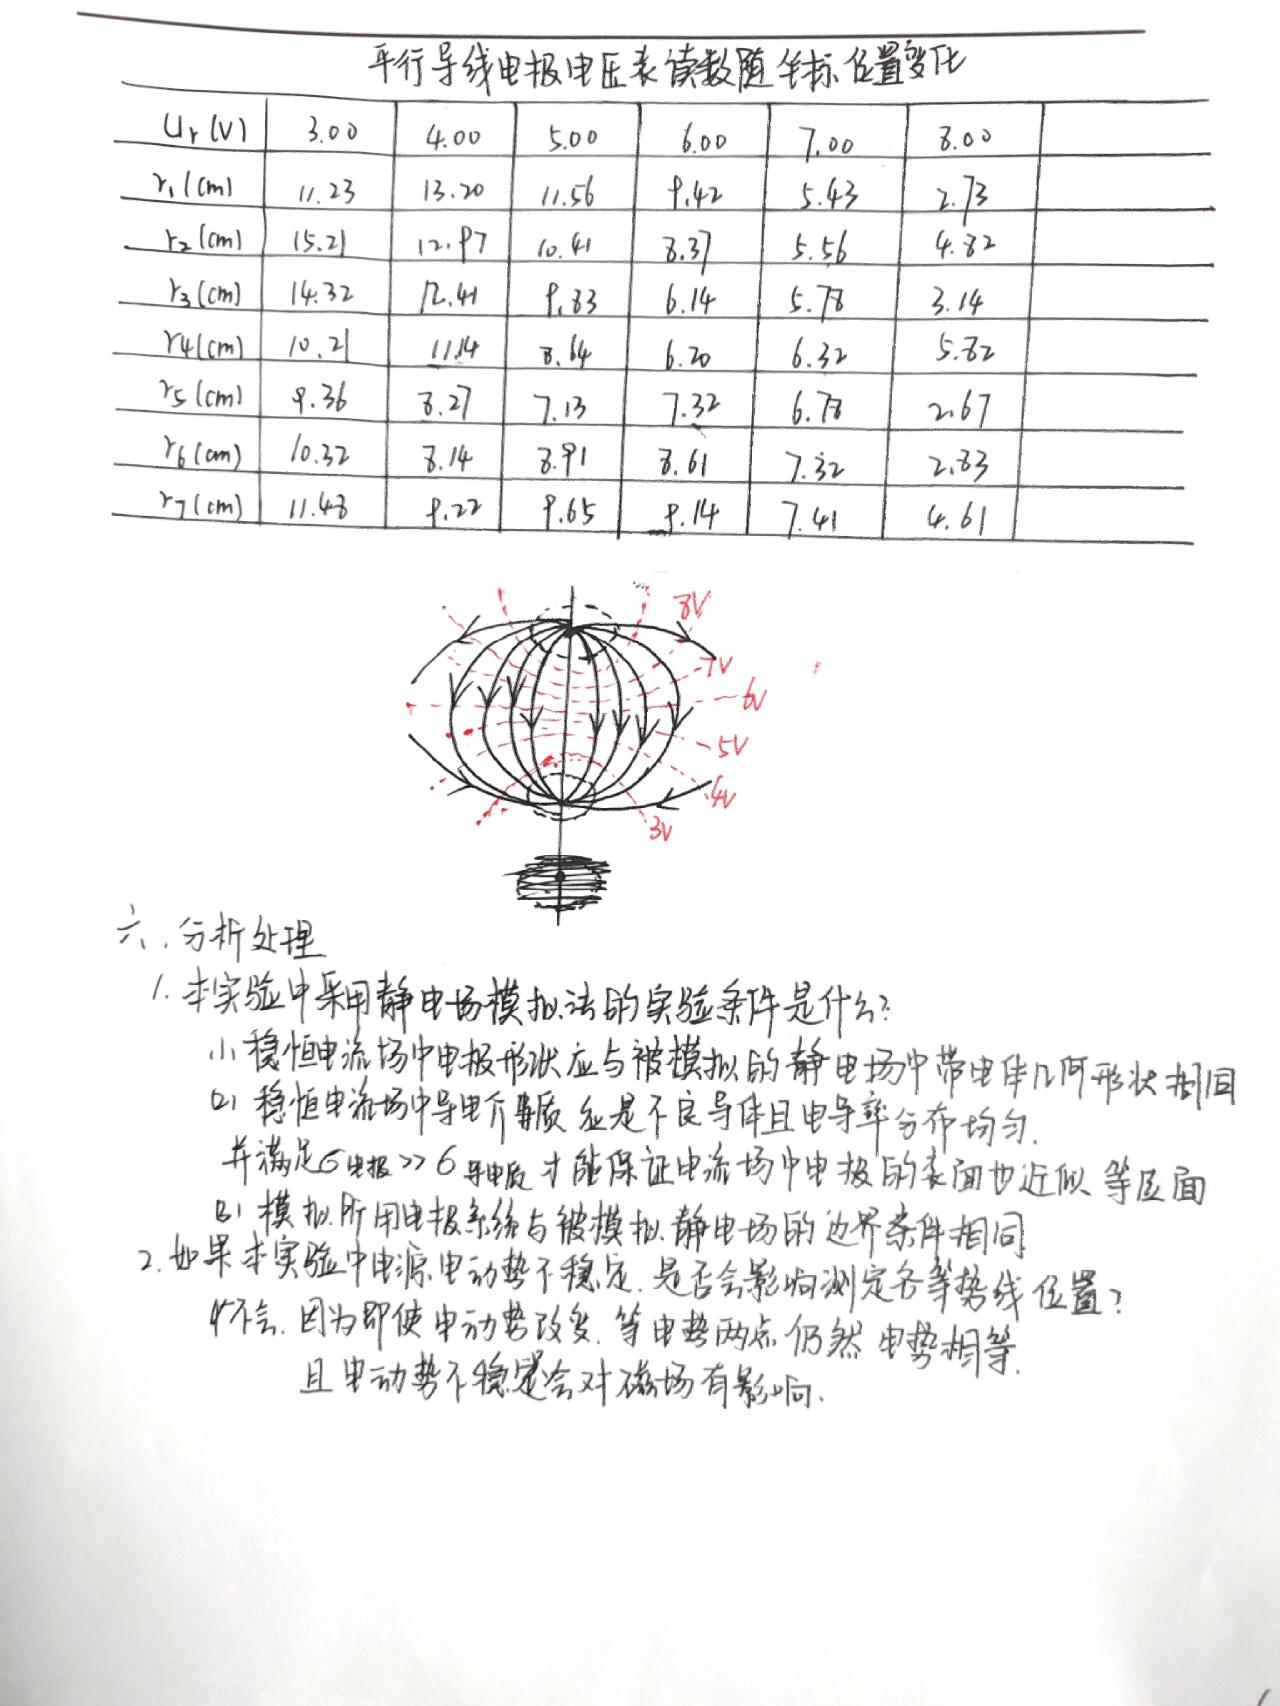 平行导线电极电压表读数随坐标位置变化
Ur(V) 3.00 4.00 5.00 6.00 7.00 8.00
r1(cm) 11.23 13.20 11.56 9.42 5.43 2.73
r2(cm) 15.21 12.97 10.41 8.37 5.56 4.82
r3(cm) 14.32 12.41 9.83 6.14 5.78 3.14
r4(cm) 10.21 11.14 8.64 6.20 6.32 5.82
r5(cm) 9.36 8.27 7.13 7.32 6.78 2.67
r6(cm) 10.32 8.14 8.91 8.61 7.32 2.83
r7(cm) 11.48 9.22 9.65 9.14 7.41 4.61
8V
7V
6V
5V
4V
3V
六、分析处理
1. 本实验中采用静电场模拟法的实验条件是什么?
(1) 稳恒电流场中电极形状应与被模拟的静电场中带电体几何形状相同
(2) 稳恒电流场中导电介质应是不良导体且电导率分布均匀.
并满足σ电极>>σ导电质才能保证电流场中电极的表面也近似等压面
(3) 模拟所用电极系统与被模拟静电场的边界条件相同
2. 如果本实验中电源电动势不稳定.是否会影响测定各等势线位置?
不会.因为即使电动势改变.等电势两点仍然电势相等.
且电动势不稳定会对磁场有影响.